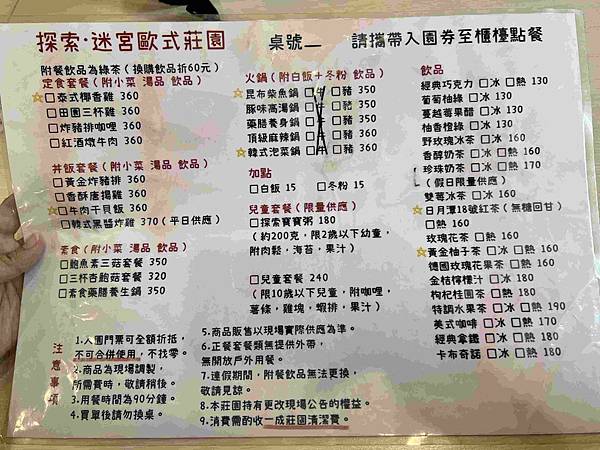 探索·迷宮歐式莊園
桌號__
請攜帶入園券至櫃檯點餐
附餐飲品為綠茶(換購飲品折60元)
定食套餐(附小菜 湯品 飲品)
☆□泰式椰香雞 360
□田園三杯雞 360
□炸豬排咖哩 360
□紅酒燉牛肉 360
丼飯套餐(附小菜 湯品 飲品)
□黃金炸豬排 360
□香酥唐揚雞 360
☆□牛肉干貝飯 360
□韓式黑醬炸雞 370(平日供應)
素食(附小菜 湯品 飲品)
□鮑魚素三菇套餐 350
□三杯杏鮑菇套餐 320
□素食藥膳養生鍋 350
火鍋(附白飯+冬粉 飲品)
☆昆布柴魚鍋 □牛 □豬 350
豚味高湯鍋 □牛 □豬 350
藥膳養身鍋 □牛 □豬 350
頂級麻辣鍋 □牛 □豬 360
☆韓式泡菜鍋 □牛 □豬 360
加點
□白飯 15 □冬粉 15
兒童套餐(限量供應)
□探索寶寶粥 180
(約200克,限2歲以下幼童,
附肉鬆,海苔,果汁)
□兒童套餐 240
(限10歲以下兒童,附咖哩,
薯條,雞塊,蝦排,果汁)
飲品
經典巧克力 □冰 □熱 130
葡萄柚綠 □冰 130
蔓越莓果醋 □冰 130
柚香橙綠 □冰 130
野玫瑰冰茶 □冰 160
香醇奶茶 □冰 □熱 160
珍珠奶茶 □冰 □熱 170
(假日限量供應)
雙莓冰茶 □冰 160
☆日月潭18號紅茶(無糖回甘)
□熱 160
玫瑰花茶 □熱 160
☆黃金柚子茶 □冰 □熱 160
德國玫瑰花果茶 □熱 160
金桔檸檬汁 □冰 □熱 160
枸杞桂圓茶 □熱 180
特調水果茶 □冰 □熱 190
美式咖啡 □冰 □熱 160
經典拿鐵 □冰 □熱 180
卡布奇諾 □冰 □熱 180
注意事項
1.入園門票可全額折抵,
不可合併使用,不找零。
2.商品為現場調製,
所需費時,敬請稍後。
3.用餐時間為90分鐘。
4.買單後請勿換桌。
5.商品販售以現場實際供應為準。
6.正餐套餐類無提供外帶,
無開放戶外用餐。
7.連假期間,附餐飲品無法更換,
敬請見諒。
8.本莊園持有更改現場公告的權益。
9.消費需酌收一成莊園清潔費。